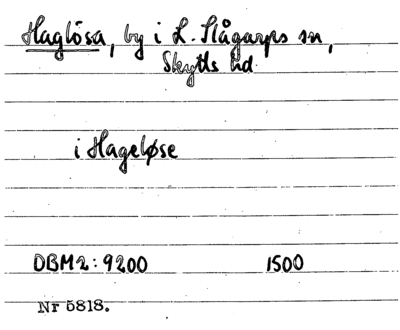 Haglösa, by i L. Slågarps sn,
Skytts hd
i Hageløse
DBM2: 9200 1500
Nr 5818.